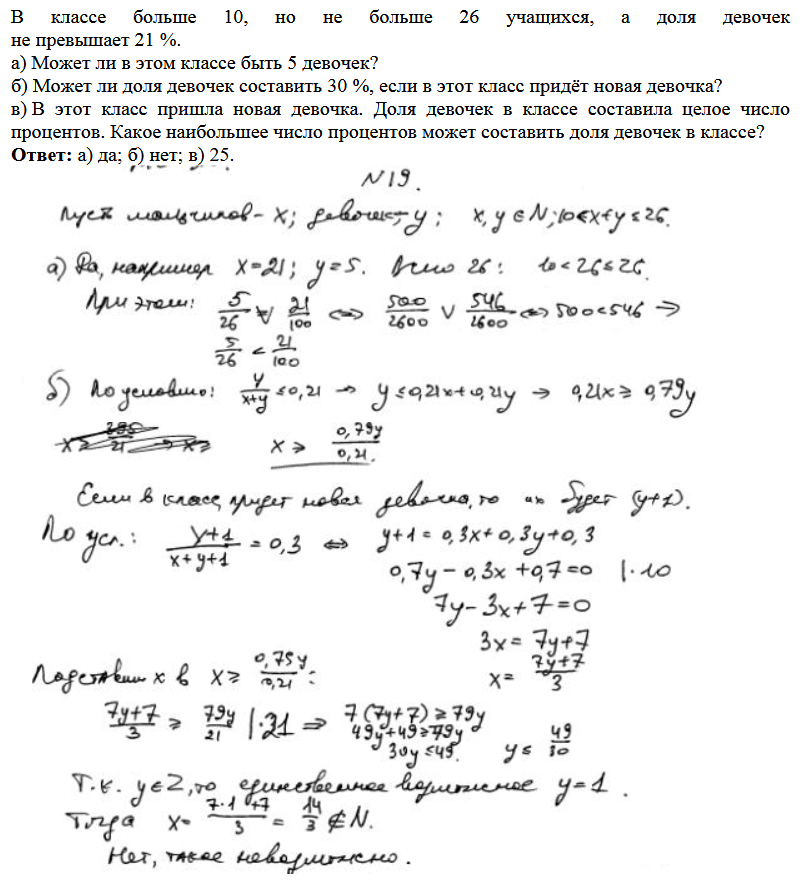 В классе больше 10, но не больше 26 учащихся, а доля девочек
не превышает 21 %.
а) Может ли в этом классе быть 5 девочек?
б) Может ли доля девочек составить 30 %, если в этот класс придёт новая девочка?
в) В этот класс пришла новая девочка. Доля девочек в классе составила целое число
процентов. Какое наибольшее число процентов может составить доля девочек в классе?
Ответ: а) да; б) нет; в) 25.
N19.
Пусть мальчиков - x; девочек - y; x, y ∈ N; 10 < x+y ≤ 26.
а) Да, например x=21; y=5. Всего 26: 10 < 26 ≤ 26.
При этом: 5/26 ∨ 21/100 ⇔ 500/2600 ∨ 546/2600 ⇔ 500<546 →
5/26 < 21/100
б) По условию: y/(x+y) ≤ 0,21 → y ≤ 0,21x+0,21y → 0,21x ≥ 0,79y
x ≥ 0,79y/0,21.
Если в класс придет новая девочка, то их будет (y+1).
По усл.: (y+1)/(x+y+1) = 0,3 ⇔ y+1 = 0,3x+0,3y+0,3
0,7y - 0,3x + 0,7 = 0 |·10
7y-3x+7=0
3x = 7y+7
x = (7y+7)/3
Подставим x в x ≥ 0,75y/0,21:
(7y+7)/3 ≥ 79y/21 |·21 ⇒ 7(7y+7) ≥ 79y
49y+49 ≥ 79y
30y ≤ 49. y ≤ 49/30
Т.к. y ∈ Z, то единственное возможное y=1.
Тогда x = (7·1+7)/3 = 14/3 ∉ N.
Нет, такое невозможно.